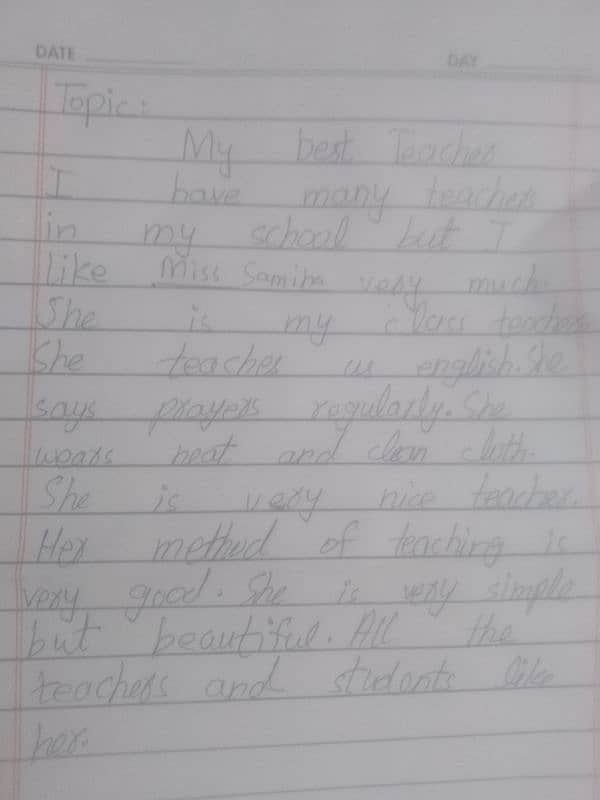 DATE
DAY
Topic:
My best Teacher
I have many teachers
in my school but I
like Miss Samina very much
She is my class teacher.
She teaches us english. She
says prayers regularly. She
wears neat and clean cloth.
She is very nice teacher.
Her method of teaching is
very good. She is very simple
but beautiful. All the
teachers and students like
her.